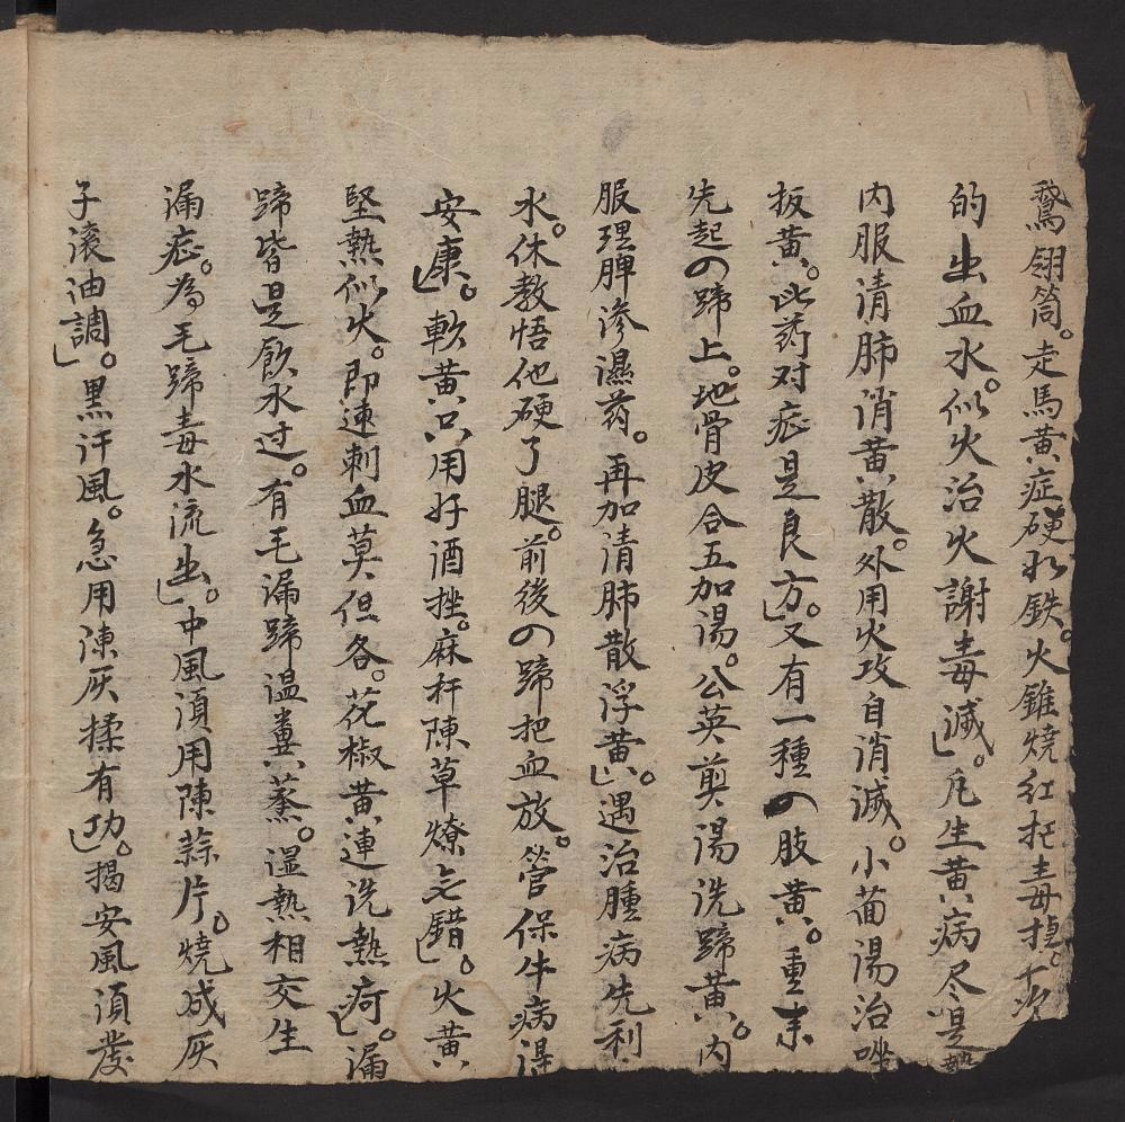 鵞翎筒。走馬黄症硬似鉄。火錐燒紅把毒掉。下次
的出血水。似火治火謝毒减」。凡生黄病尽是熱
内服清肺消黄散。外用火攻自消减。小葡湯治
扳黄。此药对症是良方」。又有一種の肢黄。重耒
先起の蹄上。地骨皮合五加湯。公英剪湯洗蹄黄。内
服理脾渗濕药。再加清肺散浮黄」。遇治腫病先利
水。休教悟他硬了腿。前後の蹄把血放。管保牛病得
安康」。軟黄只用好酒挫。麻秆陳草燎无錯」。火黄
堅熱似火。即速刺血莫但各。花椒黄連洗熱疴」。漏
蹄皆是飲水过。有毛漏蹄温糞蒸。湿熱相交生
漏症。為毛蹄毒水流出」。中風須用陳蒜片。燒成灰
子滚油調」。黒汗風。急用陳灰揉有功」。揭安風須發